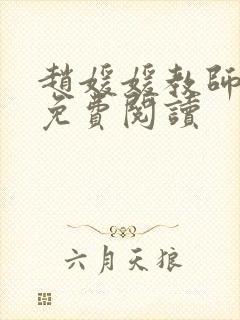 趙媛媛教師
免費閱讀
六月天狼